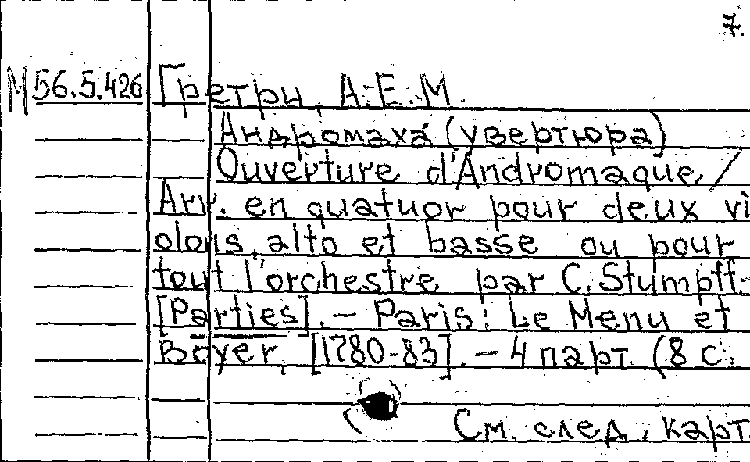 7.
М56.5.426 Гретри, А.Е.М.
Андромаха (увертюра)
Ouverture d'Andromaque /
Arr. en quatuor pour deux vi
olons, alto et basse ou pour
tout l'orchestre par C. Stumpff.-
[Parties]. – Paris: Le Menu et
Boyer, [1780-83]. – 4 парт. (8 с.
См. след. карт.